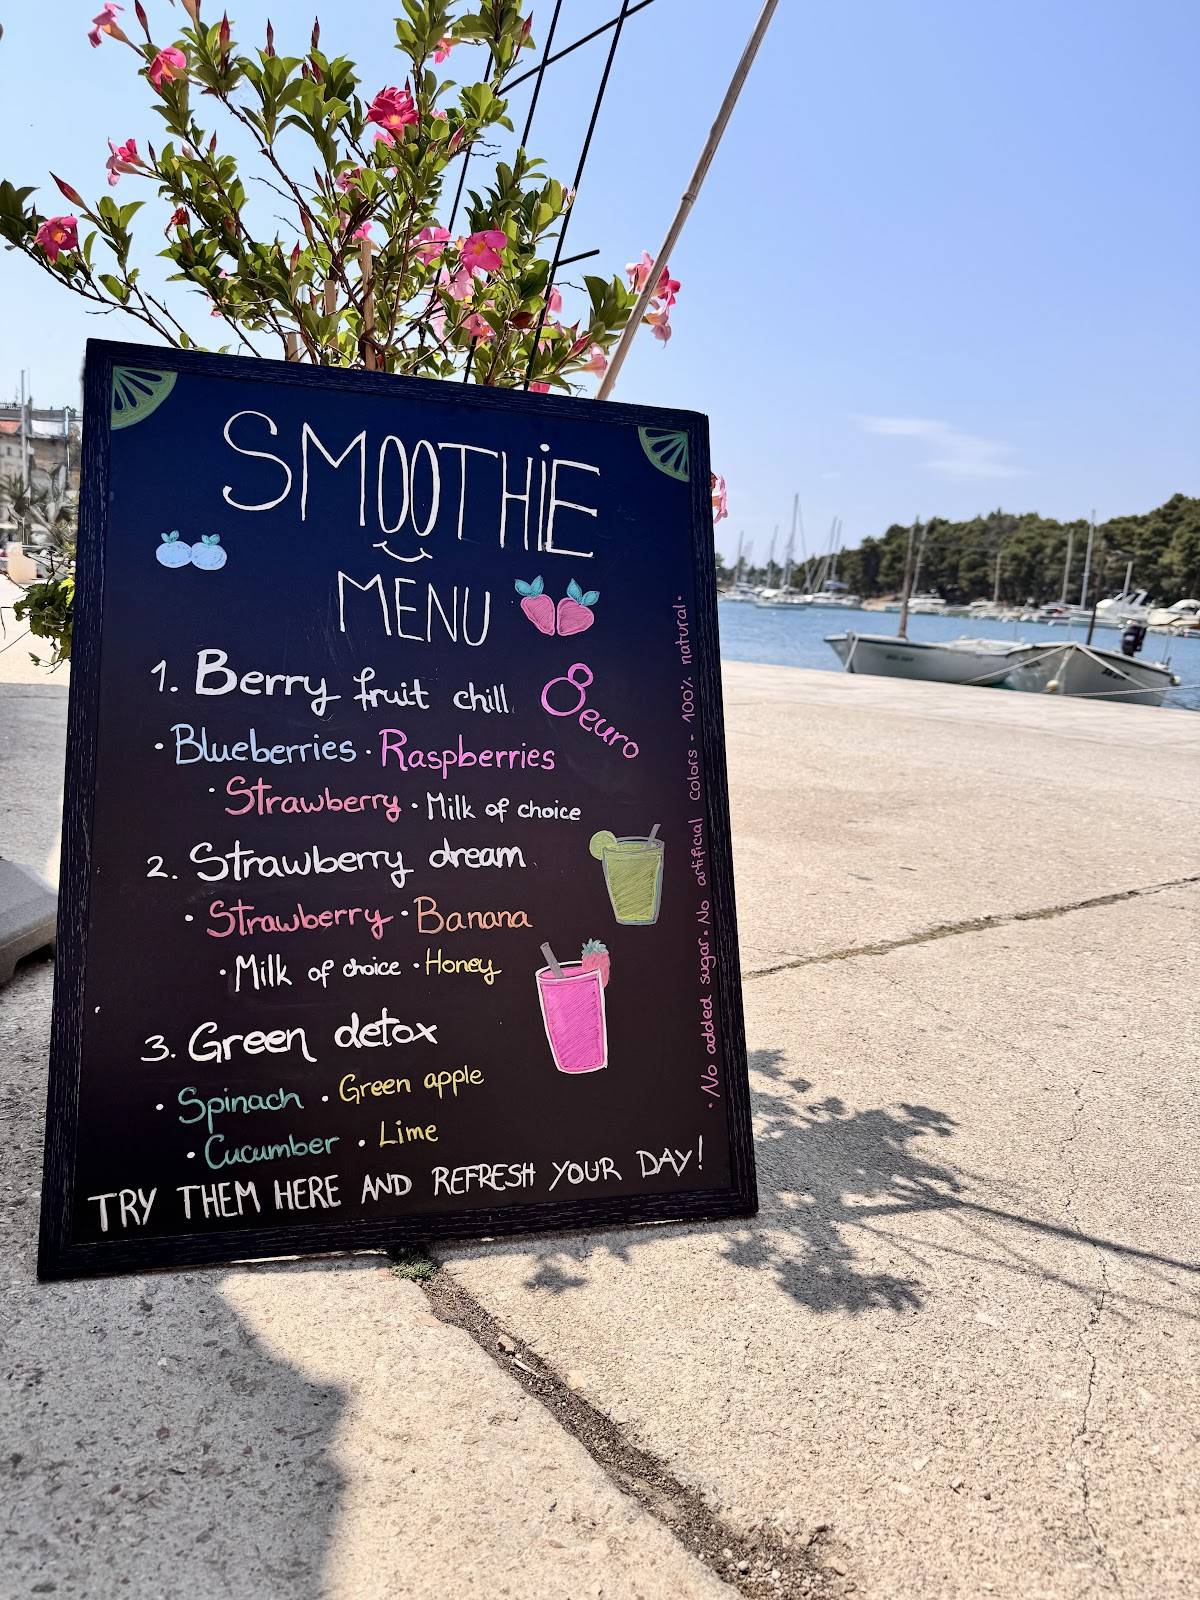 SMOOTHiE
MENU
1. Berry fruit chill
8euro
• Blueberries • Raspberries
• Strawberry • Milk of choice
2. Strawberry dream
• Strawberry • Banana
• Milk of choice • Honey
3. Green detox
• Spinach • Green apple
• Cucumber • Lime
TRY THEM HERE AND REFRESH YOUR DAY!
• No added sugar • No artificial colors - 100% natural •